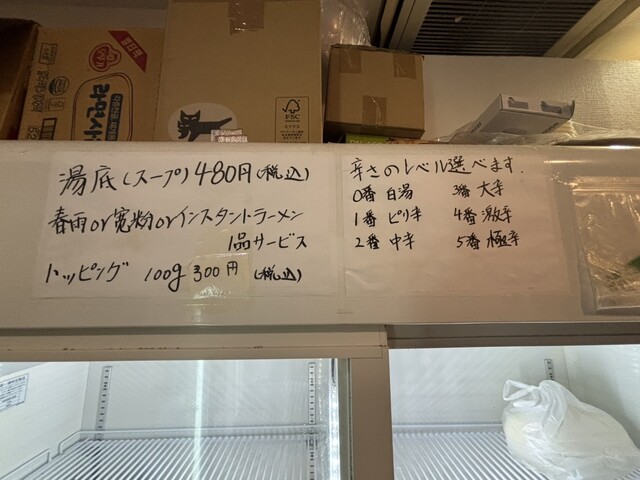 湯底(スープ)480円(税込)
春雨or寛粉orインスタントラーメン
1品サービス
トッピング 100g 300円 (税込)
辛さのレベル選べます.
0番 白湯 3番 大辛
1番 ピリ辛 4番 激辛
2番 中辛 5番 極辛
FSC